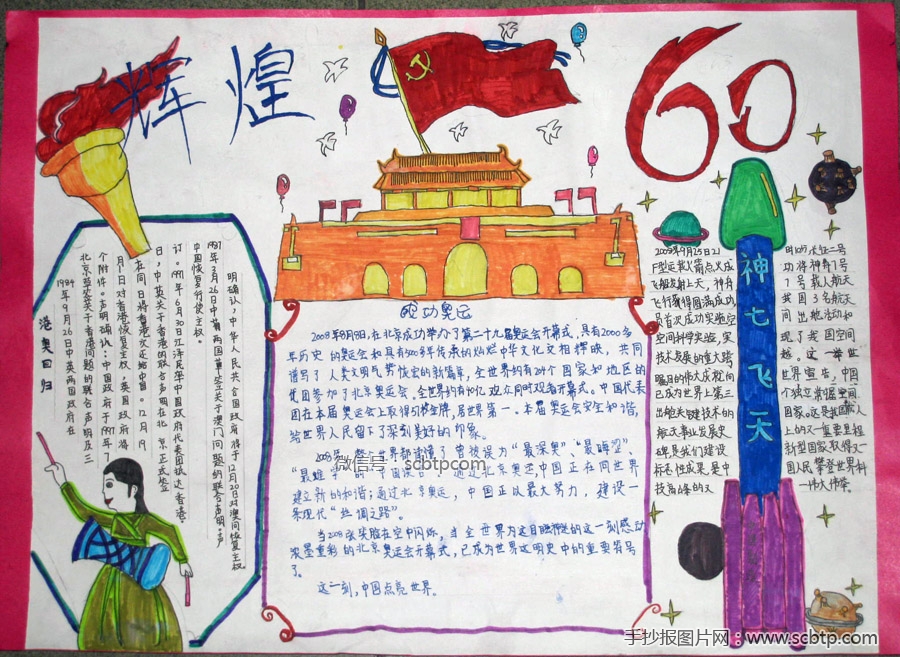 辉煌
60
港澳回归
1984年9月26日中英两国政府在
北京草签关于香港问题的联合声明及三
个附件。声明确认:中国政府于1997年7
月1日对香港恢复主权,英国政府将
在同日将香港交还给中国。12月19
日,中英关于香港的联合声明在北京正式签
订。1997年6月30日江泽民率中国政府代表团抵达香港
中国恢复行使主权。
1987年3月26日中葡两国草签关于澳门问题的联合声明。声
明确认,中华人民共和国政府将于12月20日对澳门恢复主权
成功奥运
2008年8月8日,在北京成功举办了第二十九届奥运会开幕式,具有2000多
年历史的奥运会和具有5000年传承的灿烂中华文化交相辉映,共同
谱写了人类文明气势恢宏的新篇章,全世界约有204个国家和地区的
代团参加了北京奥运会,全世界约有40亿观众同时观看开幕式。中国代表
团在本届奥运会上取得51枚金牌,居世界第一。本届奥运会安全和谐,
给世界人民留下了深刻美好的印象。
2008年,整个世界都读懂了曾被误为“最深奥”、“最晦涩”、
“最难 的“中国 通过北京奥运中国正在同世界
建立新的和谐;通过北京奥运,中国正以最大努力,建设一
条现代“丝绸之路”。
当2008张笑脸在空中闪烁,当全世界为这目 的这一刻感动
浓墨重彩的北京奥运会开幕式,已成为世界文明史中的重要符号
了。
这一刻,中国点亮世界。
神七飞天
2008年9月25日21时10分长征二号
F型运载火箭点火成功将神舟7号
飞船发射上天,神舟7号载人航天
飞行获得圆满成功我国3名航天
员首次成功实施空间出舱活动和
空间科学实验,实现了我国空间
技术发展的重大跨越。这一举世
瞩目的伟大成就向世界宣告,中国
已成为世界上第三个独立掌握空间
出舱关键技术的国家。这是我国载人
航天事业发展史上的又一重要里程
碑是我们建设新型国家取得又
标志性成果,是中国人民攀登世界科
技高峰的又一伟大伟举。
微信号:scbtp.com
手抄报图片网:www.scbtp.com